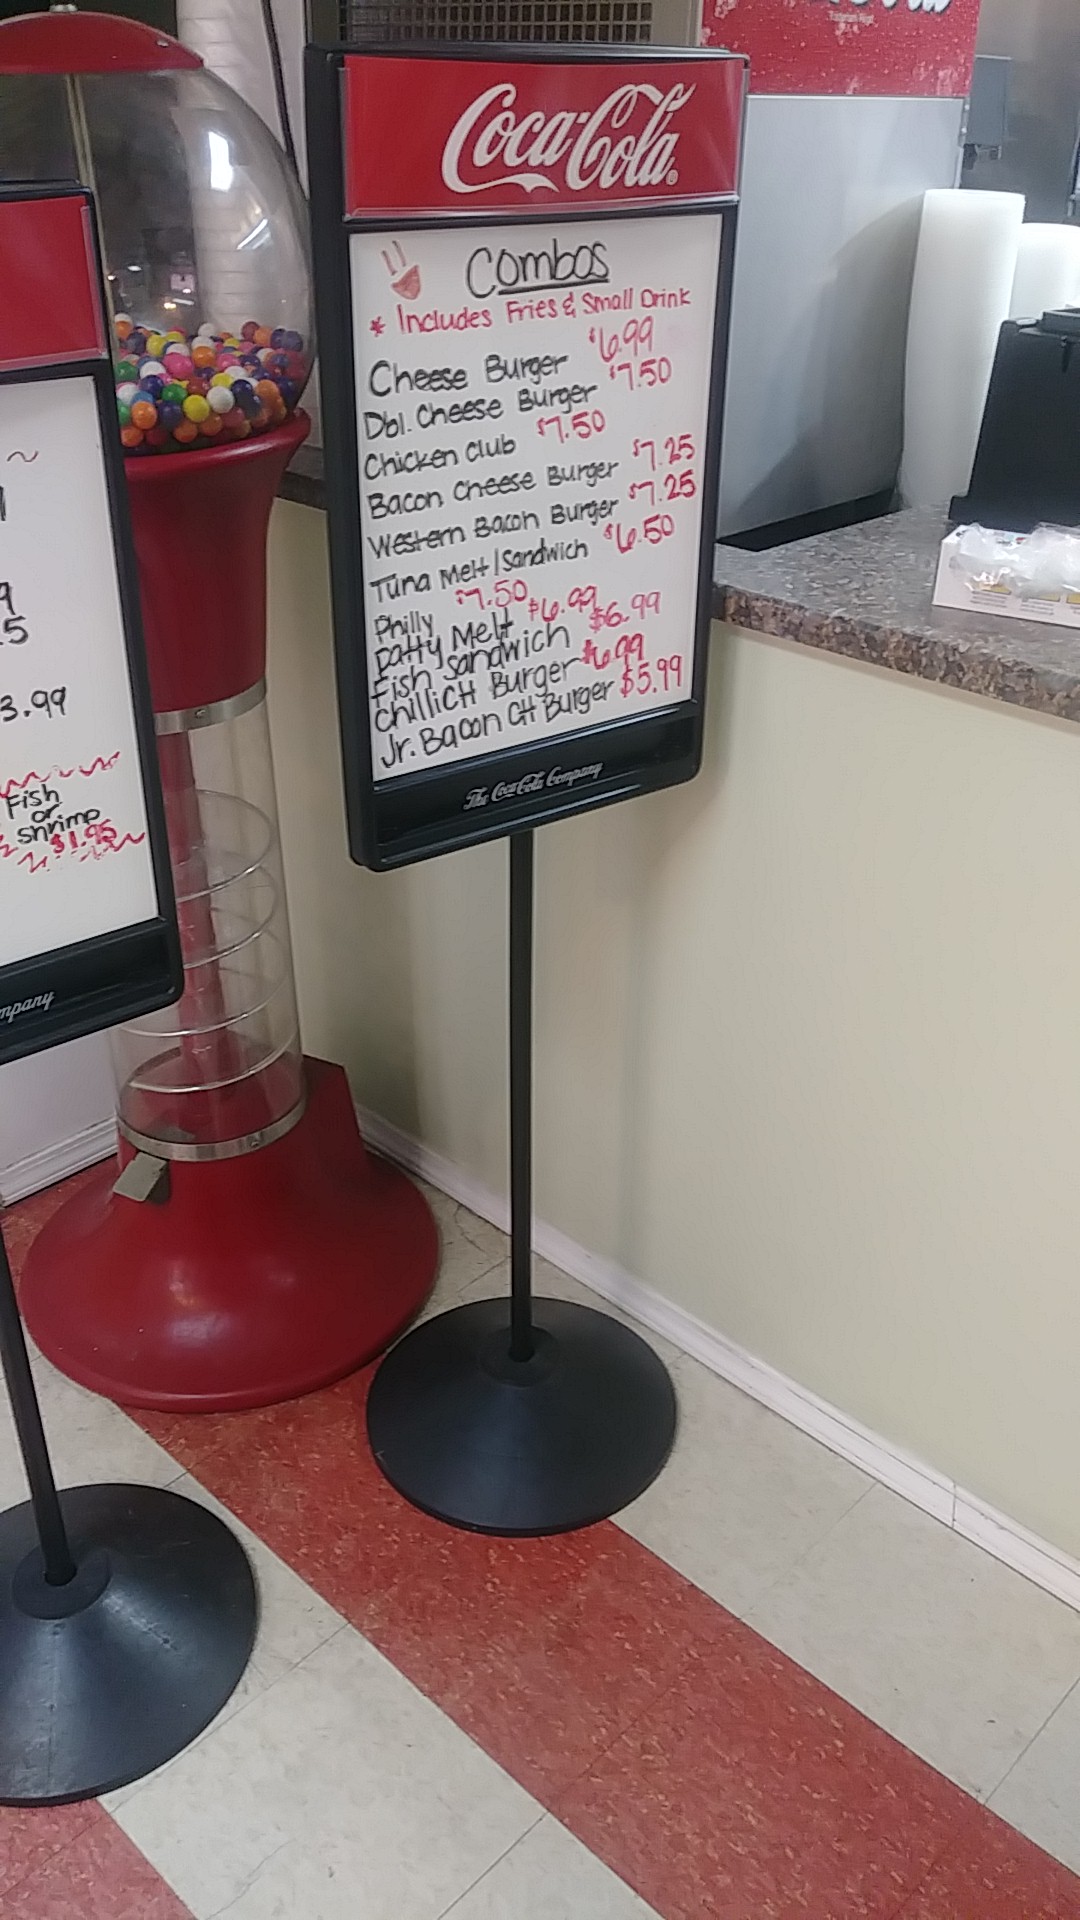 Coca-Cola
Combos
* Includes Fries & Small Drink
Cheese Burger $6.99
Dbl. Cheese Burger $7.50
Chicken Club $7.50
Bacon Cheese Burger $7.25
Western Bacon Burger $7.25
Tuna Melt/Sandwich $6.50
Philly $7.50
Patty Melt $6.99
Fish Sandwich $6.99
Chilli CH Burger $6.99
Jr. Bacon CH Burger $5.99
The Coca-Cola Company
3.99
Fish
or
Shrimp
$1.95